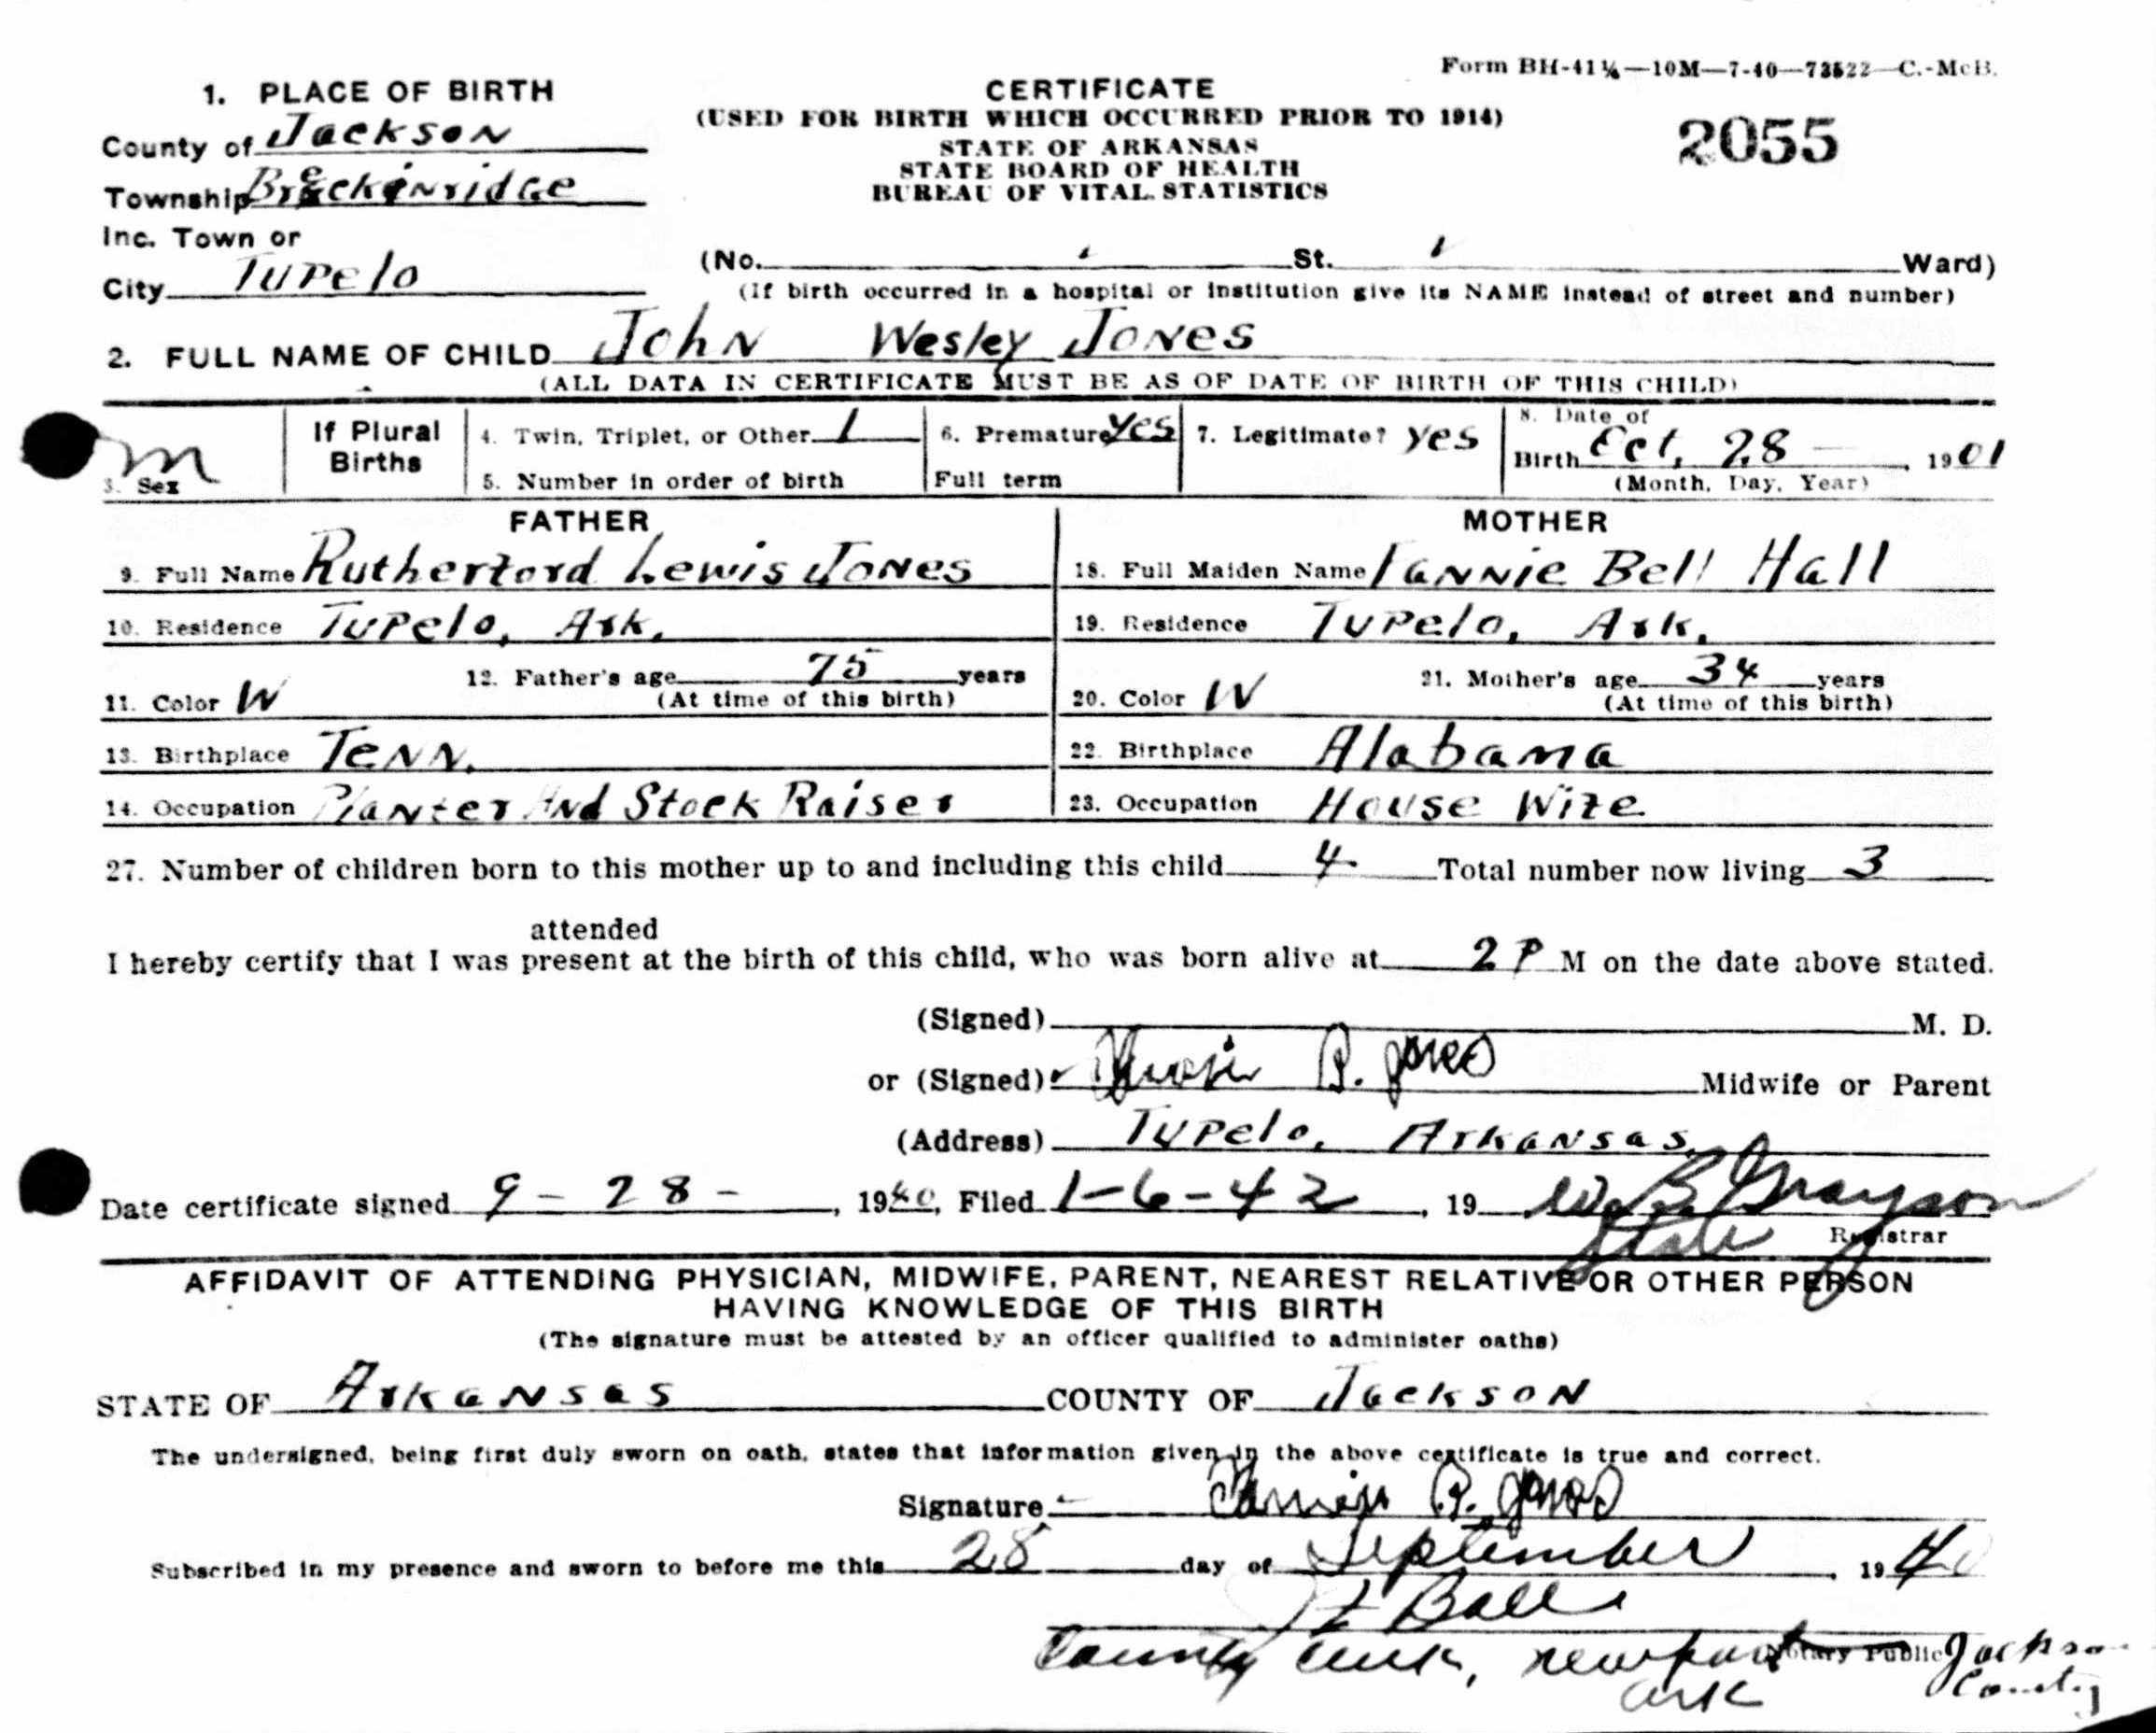 Form BH-41¼—10M—7-40—73522—C.-McB.
1. PLACE OF BIRTH
County of Jackson
Township Breckinridge
Inc. Town or
City Tupelo
CERTIFICATE
(USED FOR BIRTH WHICH OCCURRED PRIOR TO 1914)
STATE OF ARKANSAS
STATE BOARD OF HEALTH
BUREAU OF VITAL STATISTICS
2055
(No. St. Ward)
(If birth occurred in a hospital or institution give its NAME instead of street and number)
2. FULL NAME OF CHILD John Wesley Jones
(ALL DATA IN CERTIFICATE MUST BE AS OF DATE OF BIRTH OF THIS CHILD)
m
3. Sex
If Plural
Births
4. Twin, Triplet, or Other 1
5. Number in order of birth
6. Premature Yes
Full term
7. Legitimate? Yes
8. Date of
Birth Oct. 28 — , 1901
(Month, Day, Year)
FATHER
9. Full Name Rutherford Lewis Jones
10. Residence Tupelo, Ark.
11. Color W
12. Father's age 75 years
(At time of this birth)
13. Birthplace Tenn.
14. Occupation Planter And Stock Raiser
MOTHER
18. Full Maiden Name Fannie Bell Hall
19. Residence Tupelo, Ark.
20. Color W
21. Mother's age 34 years
(At time of this birth)
22. Birthplace Alabama
23. Occupation House Wife
27. Number of children born to this mother up to and including this child 4 Total number now living 3
attended
I hereby certify that I was present at the birth of this child, who was born alive at 2 P M on the date above stated.
(Signed) M. D.
or (Signed) Fannie B. Jones Midwife or Parent
(Address) Tupelo, Arkansas.
Date certificate signed 9 - 28 - , 1940, Filed 1-6-42, 19 W. B. Grayson
State Registrar
AFFIDAVIT OF ATTENDING PHYSICIAN, MIDWIFE, PARENT, NEAREST RELATIVE OR OTHER PERSON
HAVING KNOWLEDGE OF THIS BIRTH
(The signature must be attested by an officer qualified to administer oaths)
STATE OF Arkansas COUNTY OF Jackson
The undersigned, being first duly sworn on oath, states that information given in the above certificate is true and correct.
Signature Fannie B. Jones
Subscribed in my presence and sworn to before me this 28 day of September , 1940
Ball
County Clerk, Newport Notary Public Jackson
Ark County